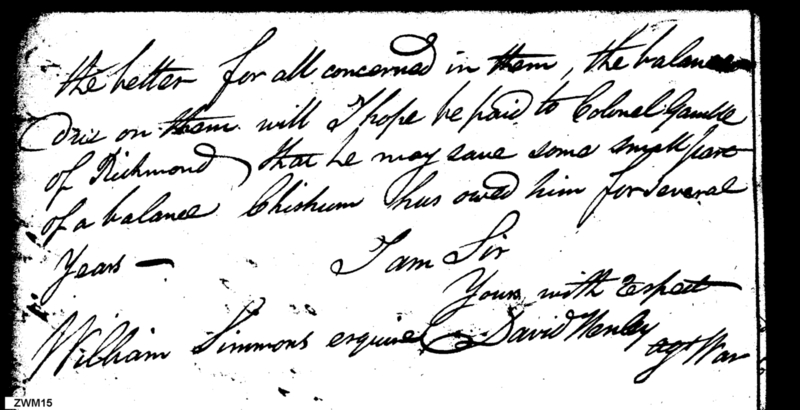 the better for all concerned in them, the balance
due on them will I hope be paid to Colonel Gamble
of Richmond that he may save some small part
of a balance Chishum has owed him for several
Years —
I am Sir
Yours with respect
William Simmons esquire David Henley
agt War
ZWM15